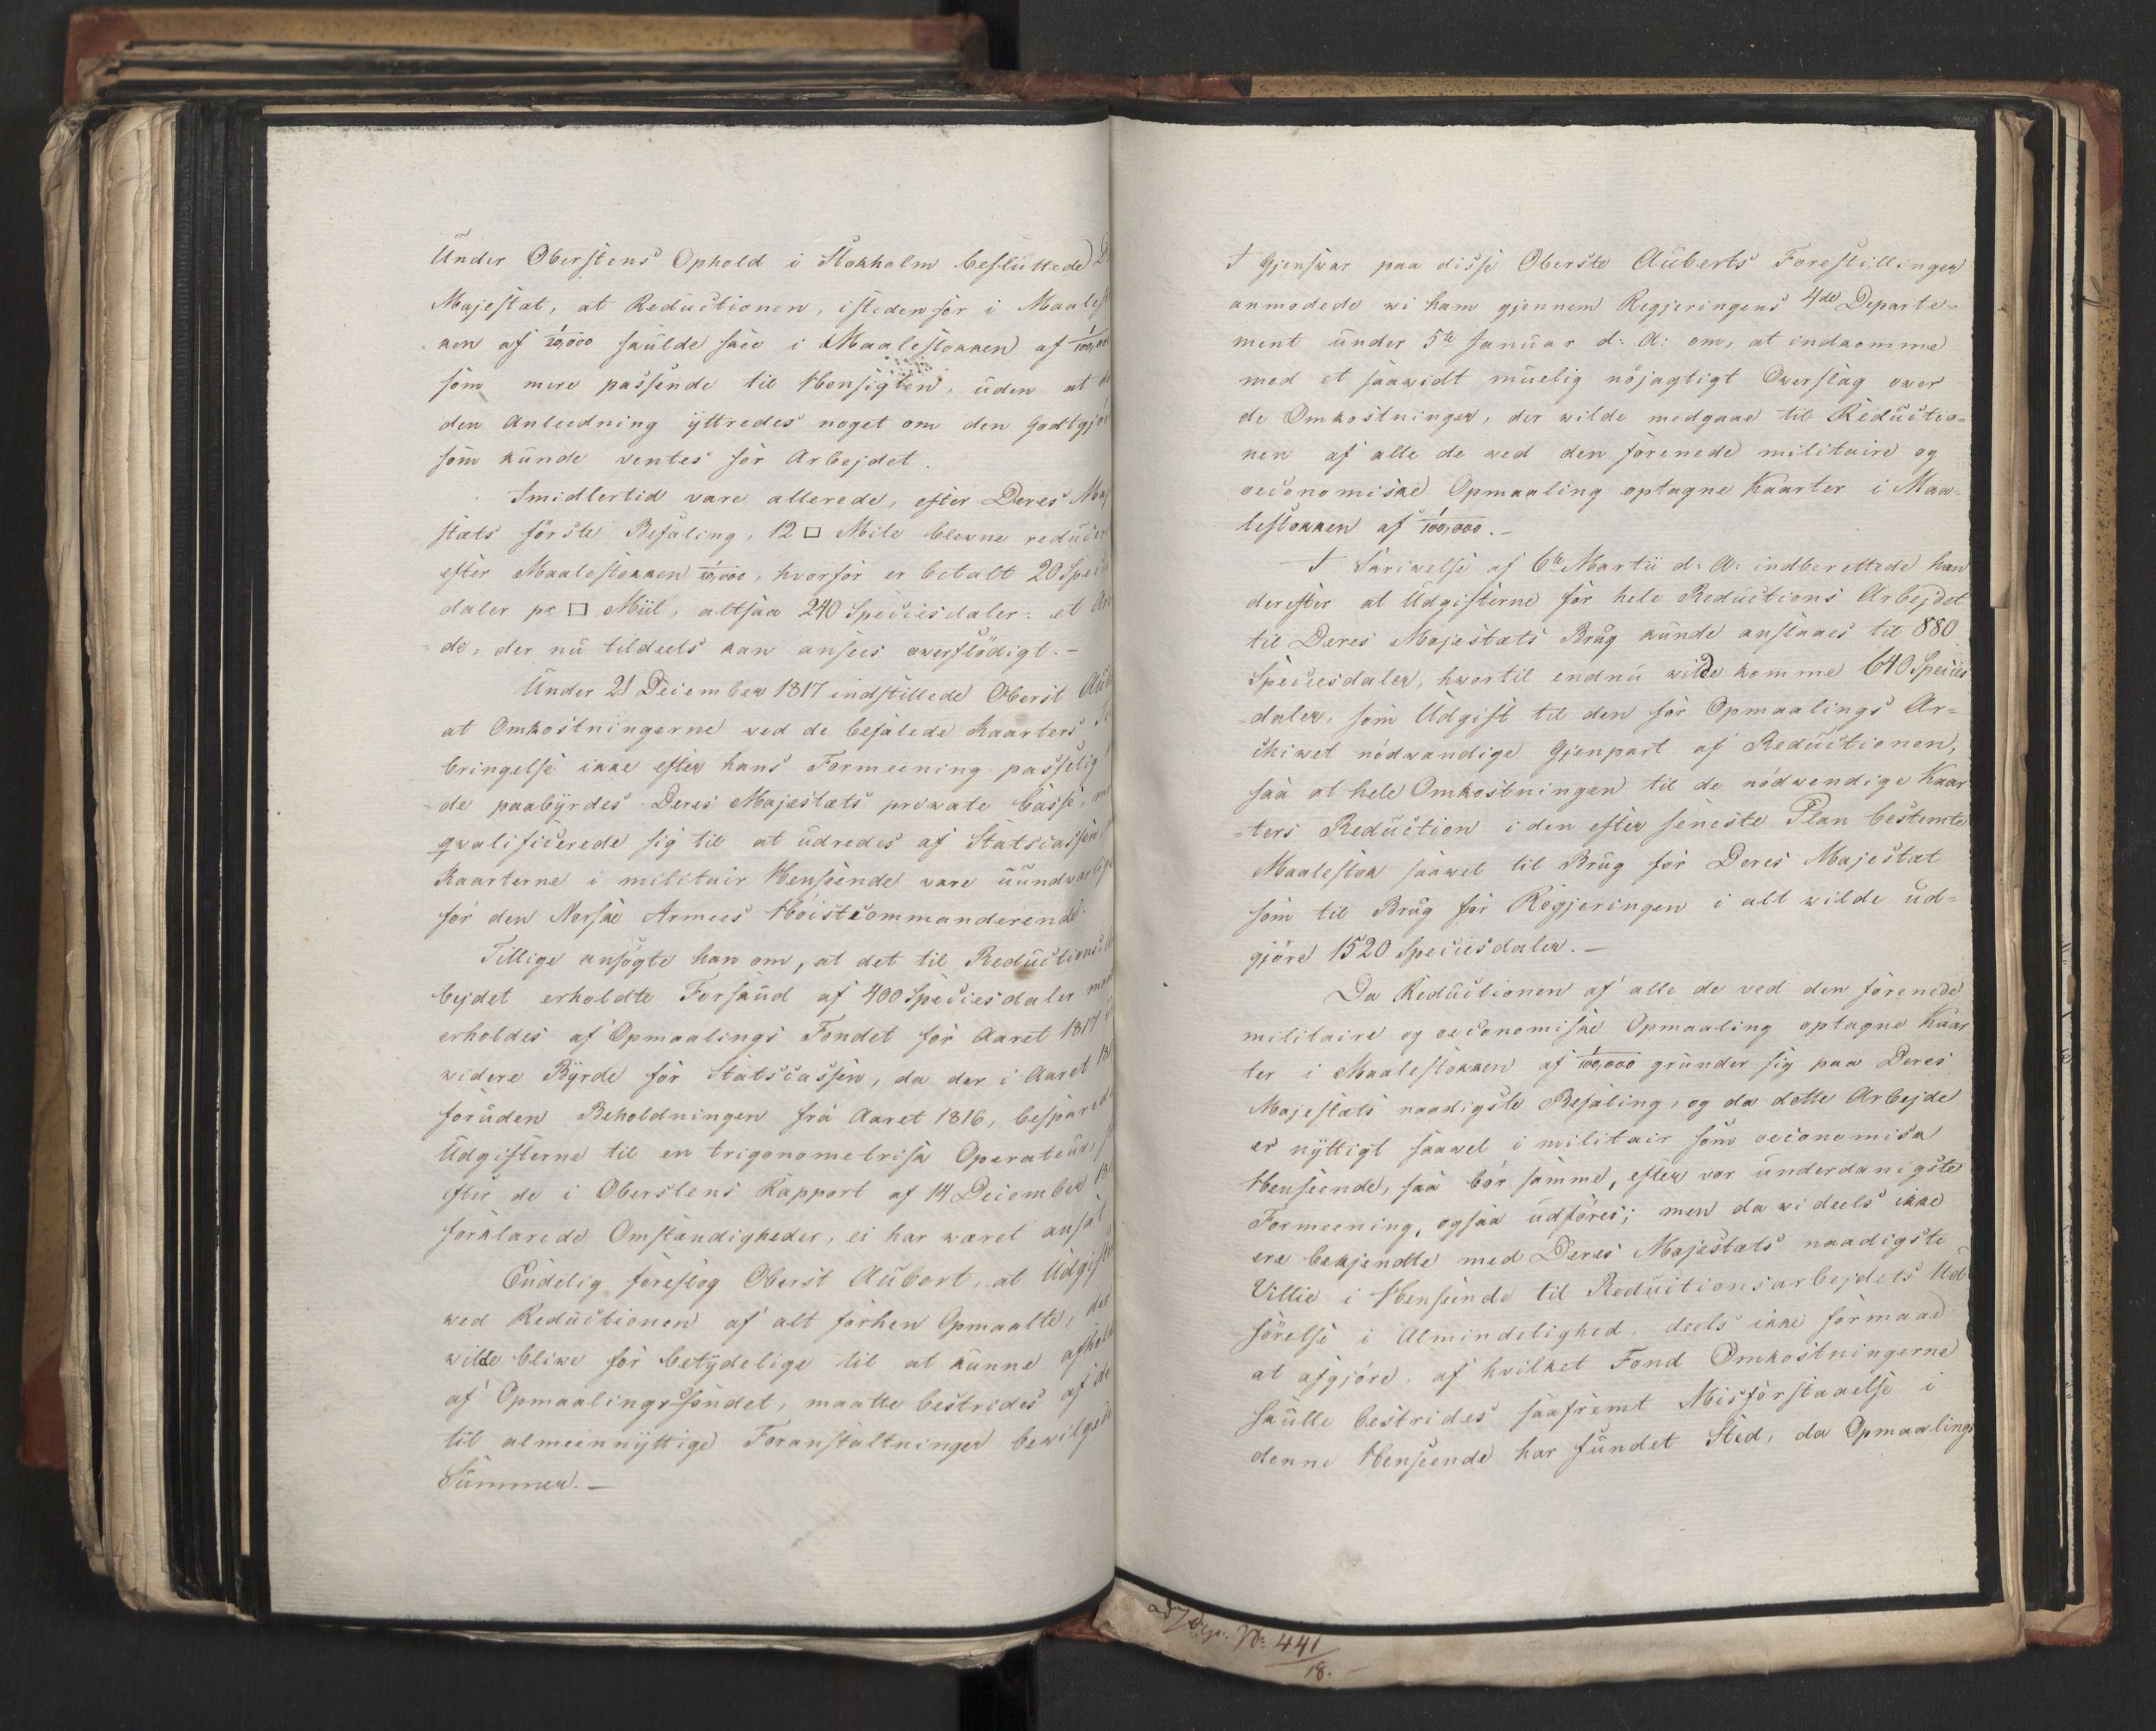 Under Oberstens Ophold i Stokholm besluttede D
Majestæt, at Reductionen, istedenfor i Maalest
ken af 1/20,000 skulde skee i Maalestokken af 1/100,00
som mere passende til Hensigten, uden at d
den Anleedning yttredes noget om den Godtgjö
som kunde ventes for Arbejdet.
Imidlertid vare allerede, efter Deres Maj
stæts förste Befaling, 12 □ Mile blewne reducer
efter Maalestokken 1/20,000, hvorfor er betalt 20 Speci
daler pr. □ Miil, altsaa 240 Speciesdaler: et Arb
=de, der nu tildeels kan ansees owerflödigt.-
Under 21 December 1817 indstillede Oberst Aub
at Omkostningerne ved de befalede Kaarters
bringelse ikke efter hans Formeening passelig
=de paabyrdes Deres Majestæts private Casse, m
qwalificerede sig til at udredes af Statscassen
Kaarterne i militair Henseende vare uundvarlige
for den Norske Armees Höistcommanderende.
Tillige ansögte han om, at det til Reductions
bejdet erholdte Forskud af 400 Speciesdaler m
erholdes af Opmaalings Fondet for Aaret 1817
widere Byrde for Statscassen, da der i Aaret 181
foruden Beholdningen fra Aaret 1816, besparede
Udgifterne til en trigonometrisk Operateur,
efter de i Oberstens Rapport af 14 December 18
forklarede Omstændigheder, ei har waret ansat
Endelig foreslog Oberst Aubert, at Udgift
wed Reductionen af alt forhen Opmaalte, der
wilde bliwe for betydelige til at kunne afhold
af Opmaalingsfondet, maatte bestrides af de
til almeennyttige Foranstaltninger bewilgede
Summer.-
I Gjenswar paa disse Oberste Auberts Forestillinger
anmodede wi ham gjennem Regjeringens 4de Departe=
ment under 5te Januar d: A: om, at indkomme
med et saawidt muelig nöjagtigt Overslag ower
de Omkostninger, der wilde medgaae til Reductio=
nen af alle de wed den forenede militaire og
oeconomiske Opmaaling optagne Kaarter i Maa=
lestokken af 1/100,000.-
I Skriwelse af 6te Martii d: A: indberettede han
derefter at Udgifterne for hele Reductions Arbejdet
til Deres Majestæts Brug kunde anslaaes til 880
Speciesdaler, hwortil endnu wilde komme 640 Species
=daler, som Udgift til den for Opmaalings Ar=
chiwet nödwandige Gjenpart af Reductionen,
saa at hele Omkostningen til de nödwendige Kaar
=ters Reduction i den efter seneste Plan bestemte
Maalestok saawel til Brug for Deres Majestæt
som til Brug for Regjeringen i alt wilde ud=
gjöre 1520 Speciesdaler.-
Da Reductionen af alle de ved den forenede
militaire og oeconomiske Opmaaling optagne Kaar
ter i Maalestokken af 1/100,000 grunder sig paa Deres
Majestæts naadigste Befaling, og da dette Arbejde
er nyttigt saawel i militair som oeconomisk
Henseende, saa bör samme, efter vor underdanigste
Formeening, ogsaa udföres; men da wi deels ikke
ere bekjendte med Deres Majestæts naadigste
Villie i Henseende til Reductionsarbejdets Ud
förelse i Almindelighed, deels ikke formaae
at afgjöre af hvilket Fond Omkostningerne
skulle bestrides saafremt Misforstaaelse i
denne Henseende har fundet Sted, da Opmaalings
No 441/18.-